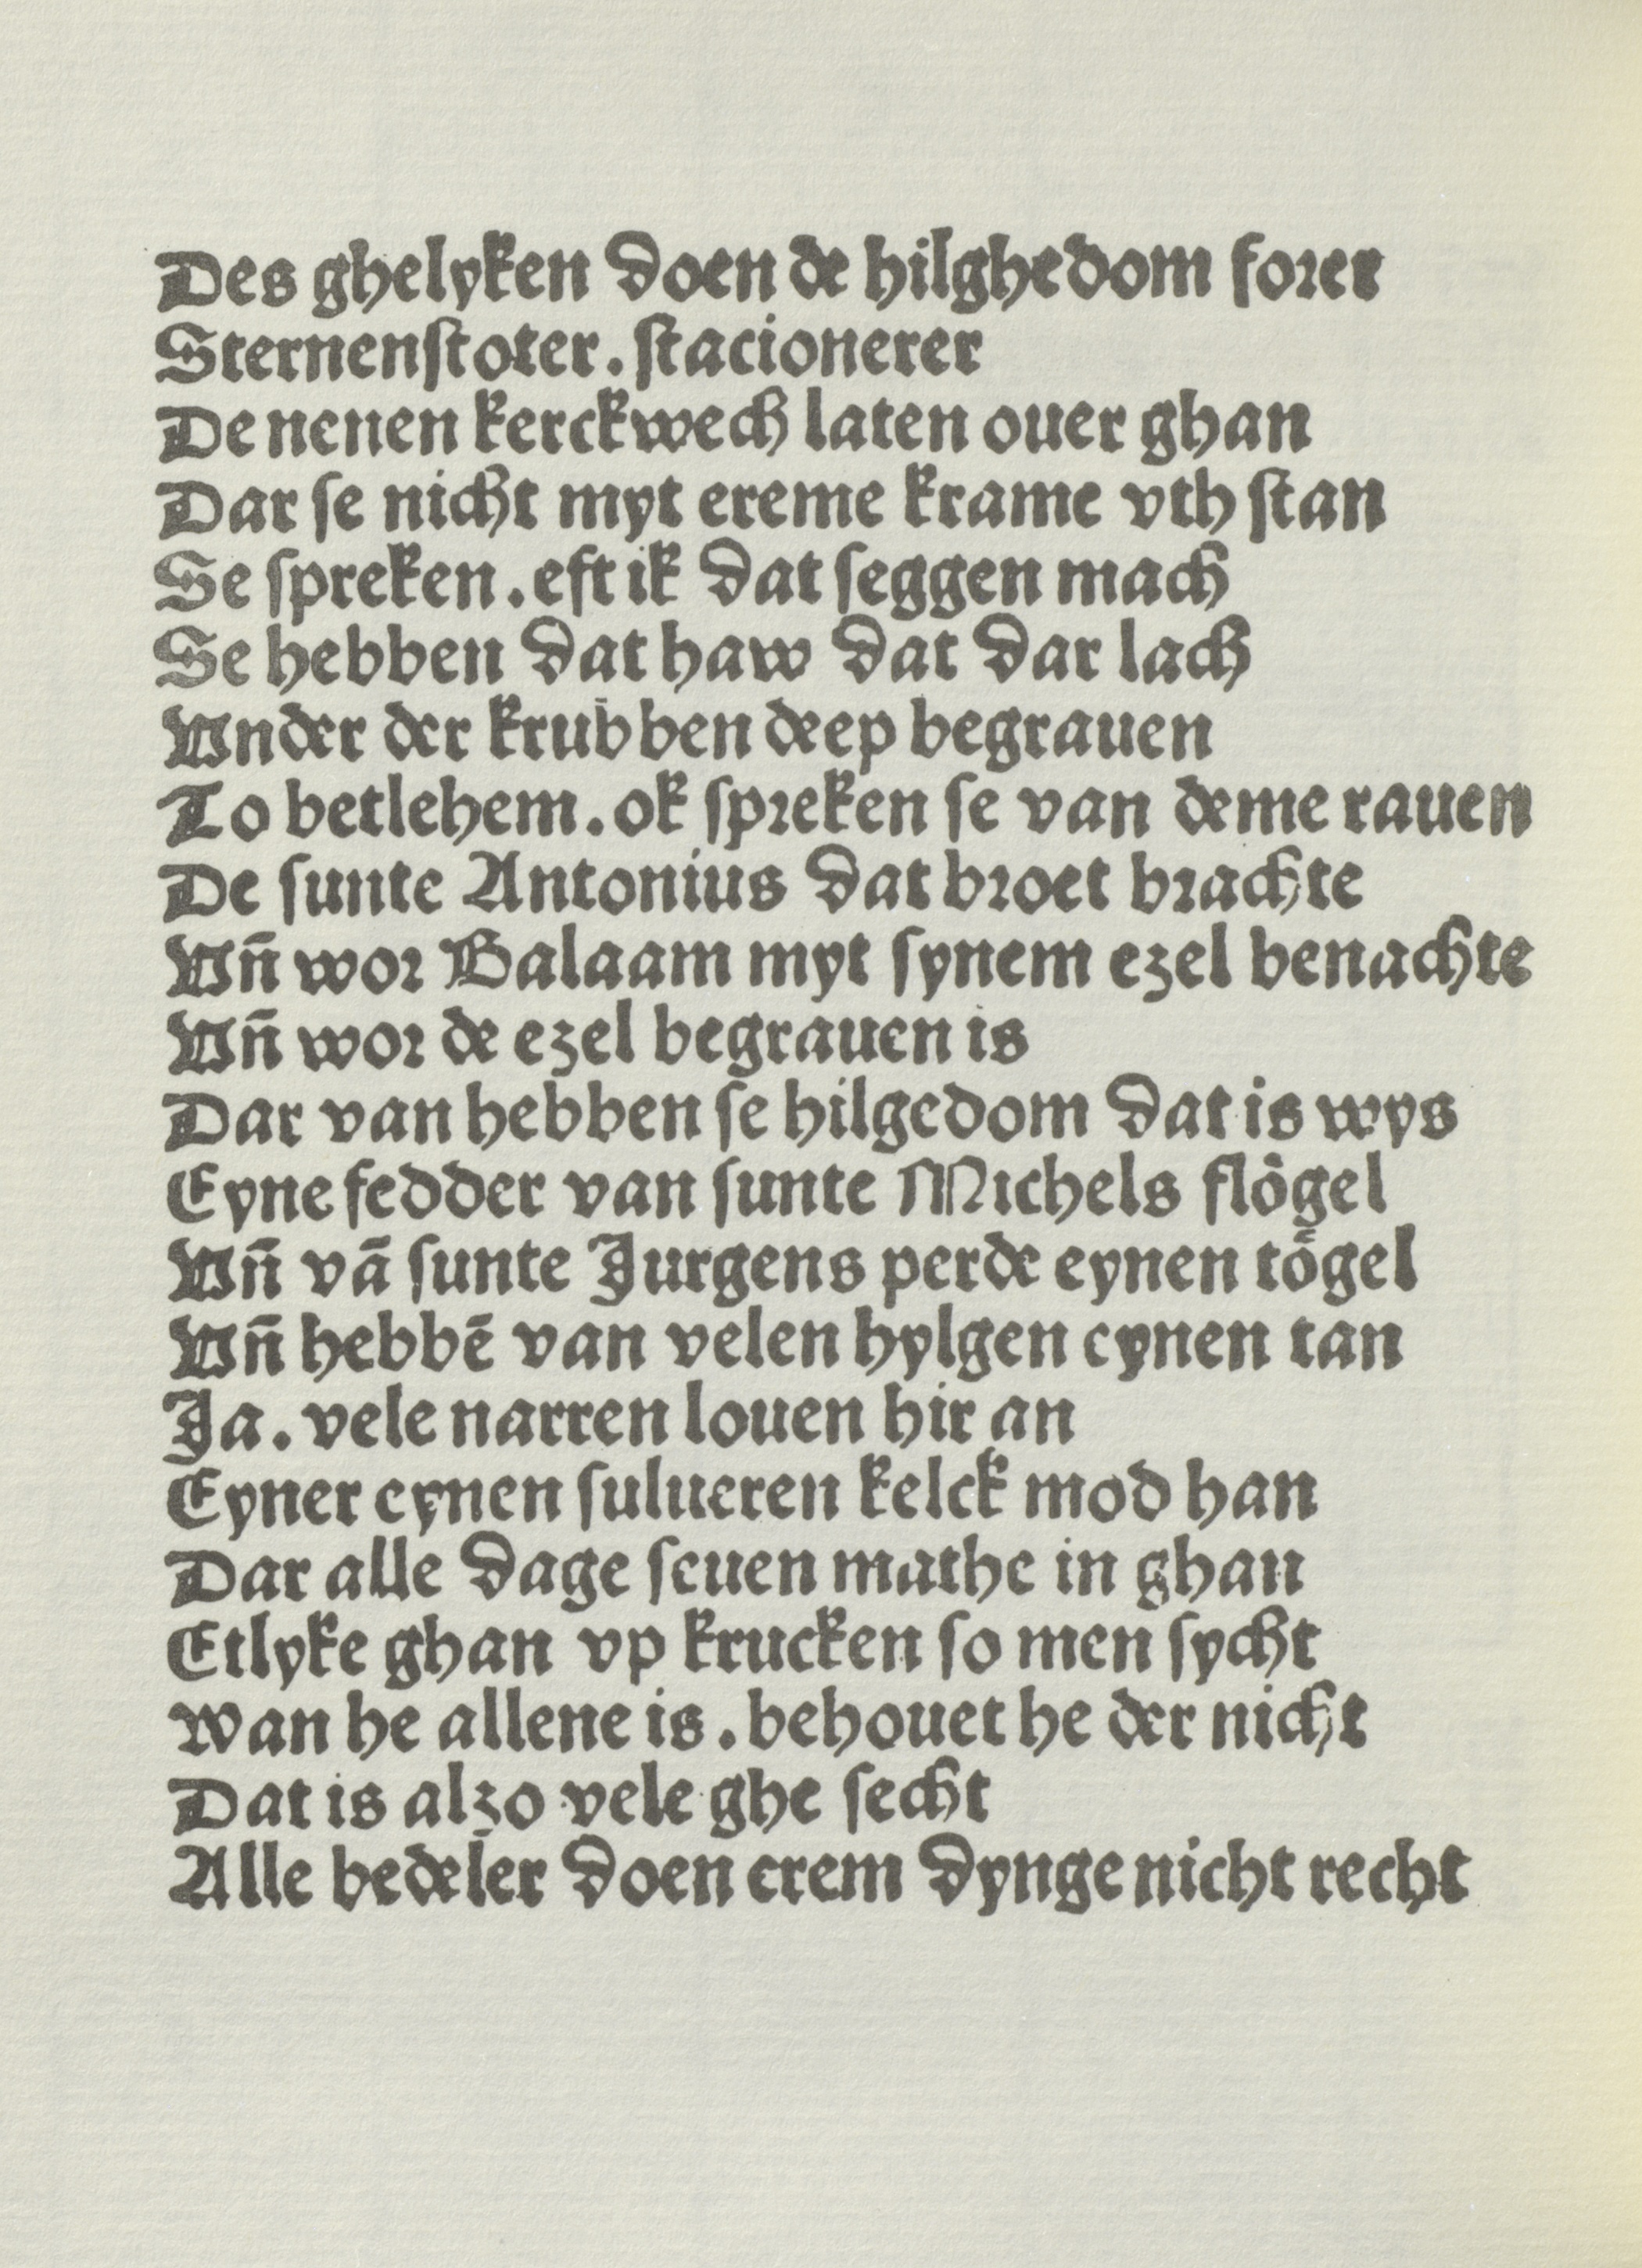 Des ghelyken doen de hilghedom forer
Sternenstoter. stacionerer
De nenen kerckwech laten ouer ghan
Dar se nicht myt ereme krame vth stan
Se spreken. eft ik dat seggen mach
Se hebben dat haw dat dar lach
Vnder der krubben deep begrauen
To betlehem. ok spreken se van deme rauen
De sunte Antonius dat broet brachte
Vn̄ wor Balaam myt synem ezel benachte
Vn̄ wor de ezel begrauen is
Dar van hebben se hilgedom dat is wys
Eyne fedder van sunte Michels flögel
Vn̄ vā sunte Jurgens perde eynen tögel
Vn̄ hebbē van velen hylgen eynen tan
Ja. vele narren louen hir an
Eyner eynen sulueren kelck mod han
Dar alle dage seuen mathe in ghan
Etlyke ghan vp krucken so men sycht
wan he allene is. behouet he der nicht
Dat is alzo vele ghe secht
Alle bedeler doen erem dynge nicht recht